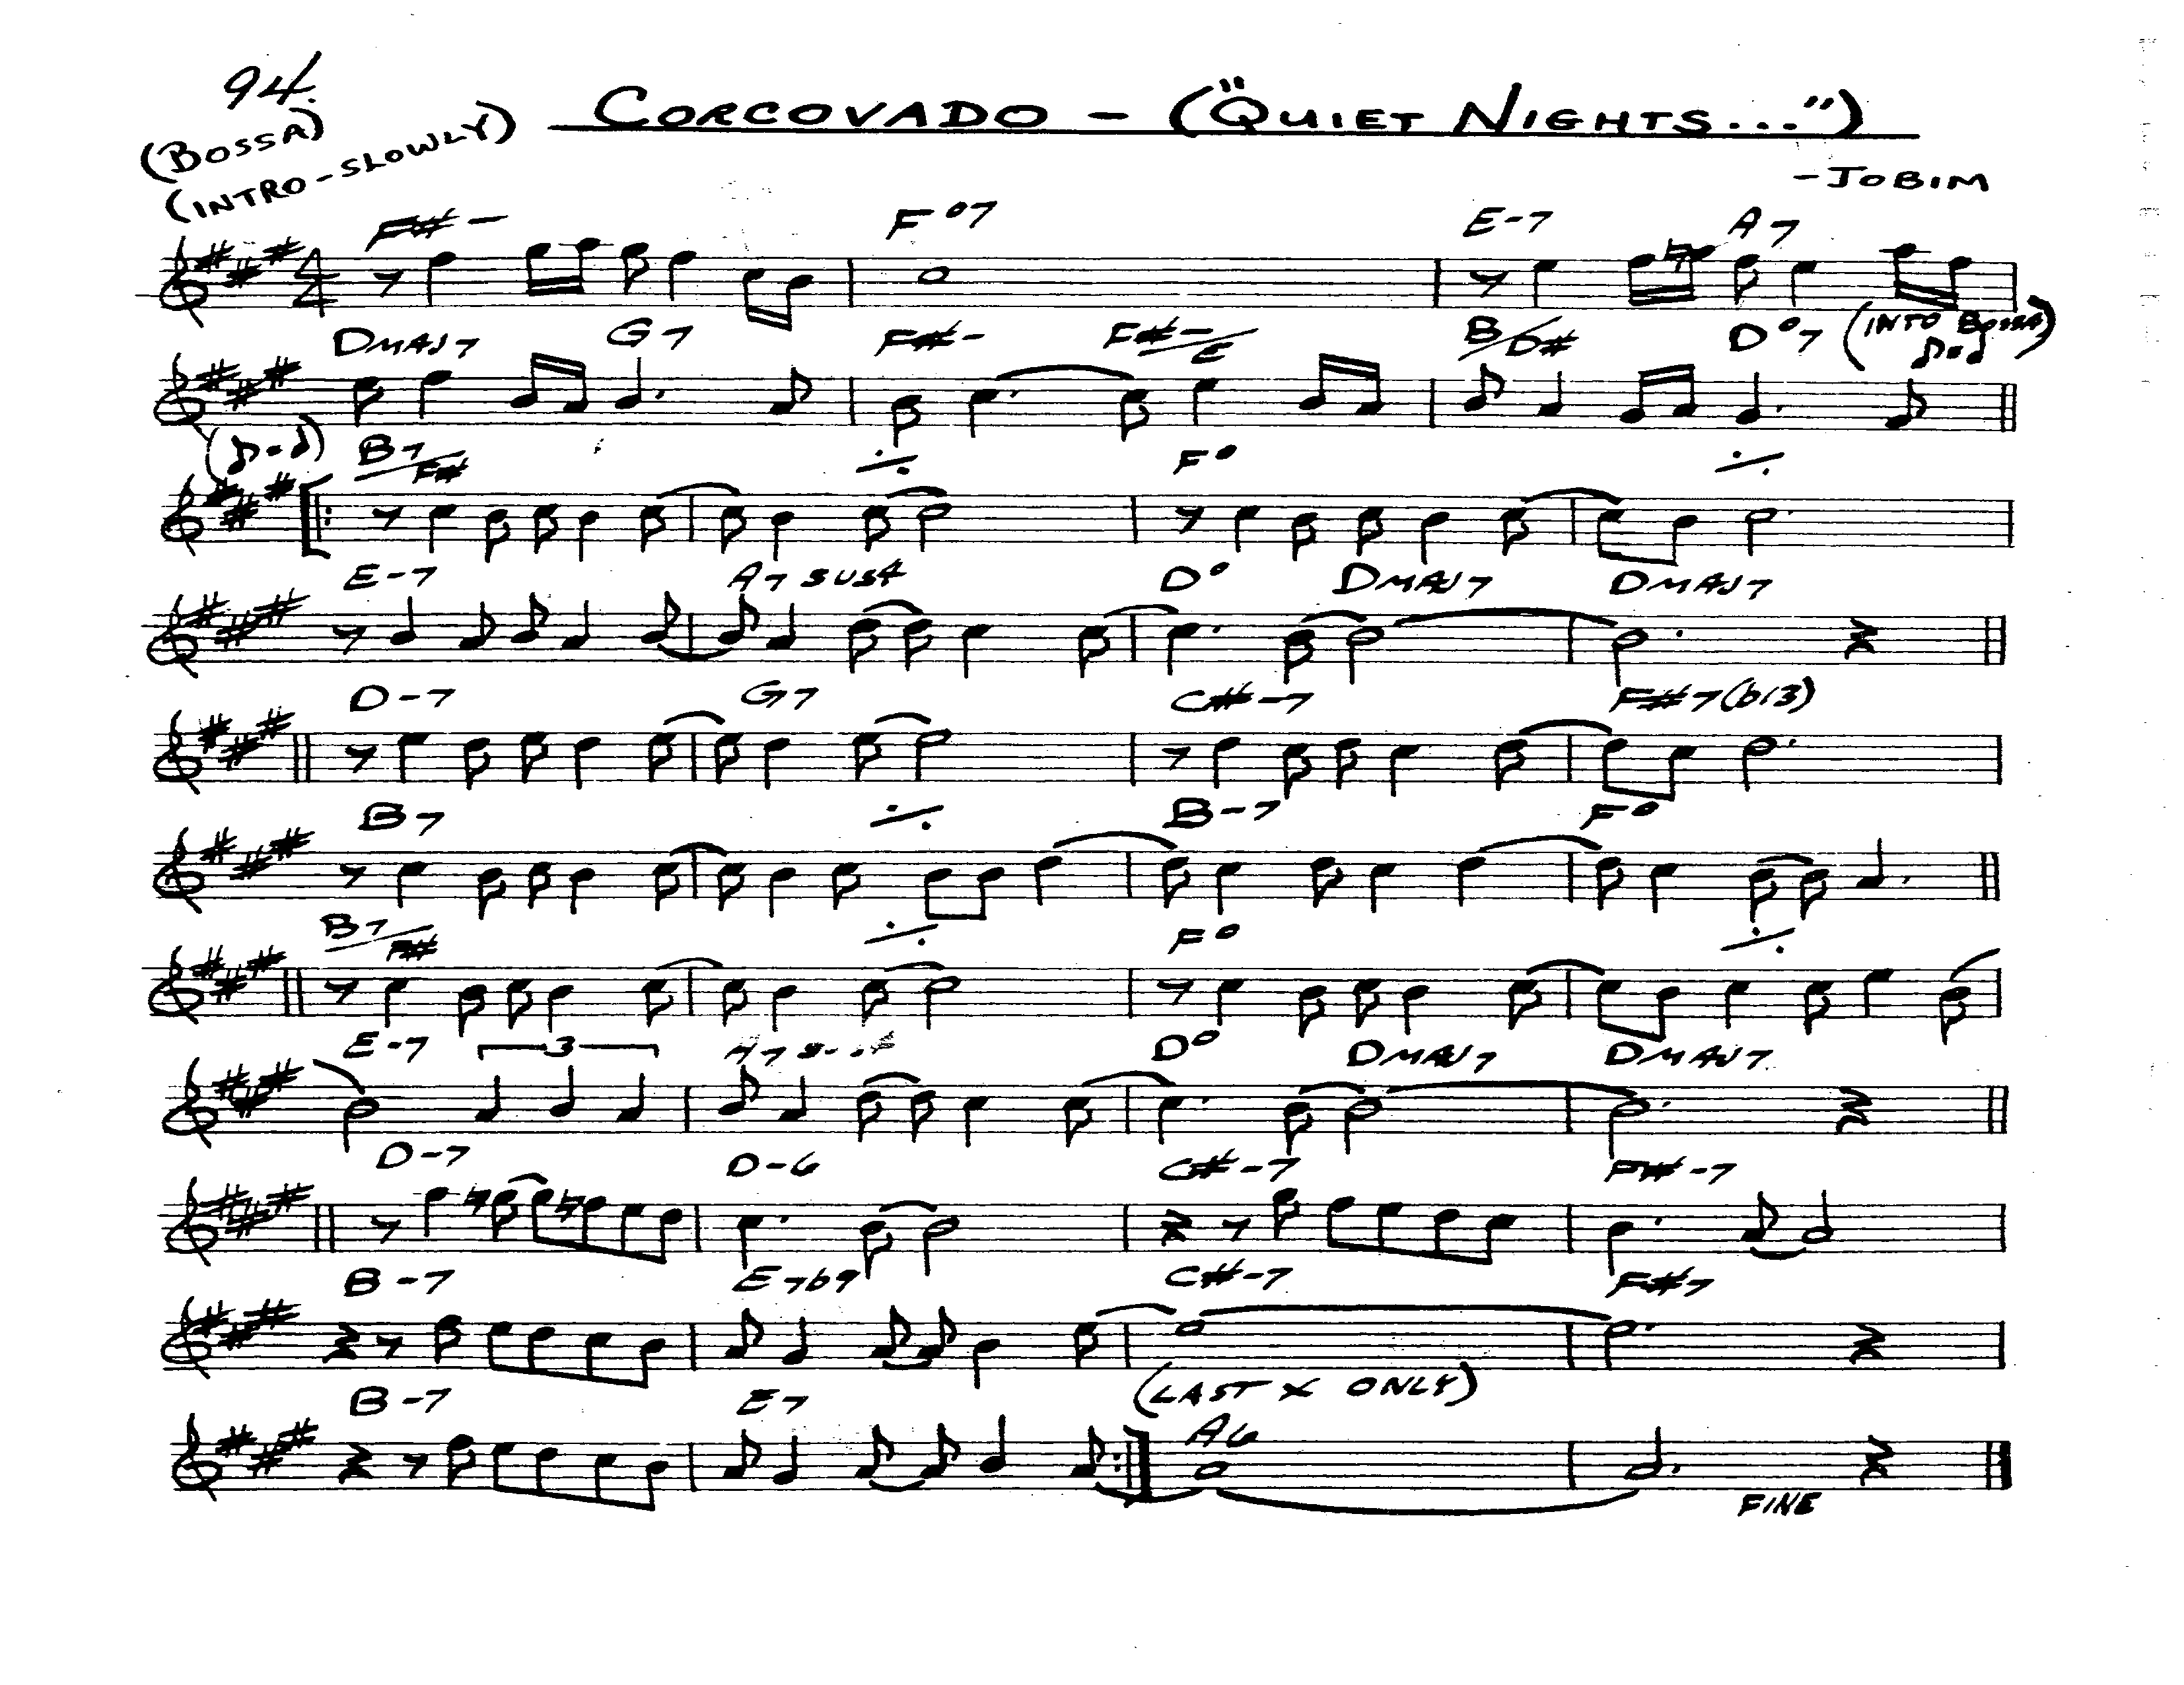 94.
CORCOVADO - ("QUIET NIGHTS...")
(BOSSA)
(INTRO-SLOWLY)
-JOBIM
F#- F°7 E-7 A7
4/4
DMAJ7 G7 F#- F#-/E B/D# D°7 (INTO BOSSA)
♪=𝅗𝅥
(♪=𝅗𝅥) B7/F# F°
E-7 A7 SUS4 D° DMAJ7 DMAJ7
D-7 G7 C#-7 F#7(b13)
B7 B-7 F°
B7/F# F°
E-7 3 A7 D° DMAJ7 DMAJ7
D-7 D-6 C#-7 F#-7
B-7 E7b9 C#-7 F#7
B-7 E7 (LAST X ONLY)
A6
FINE